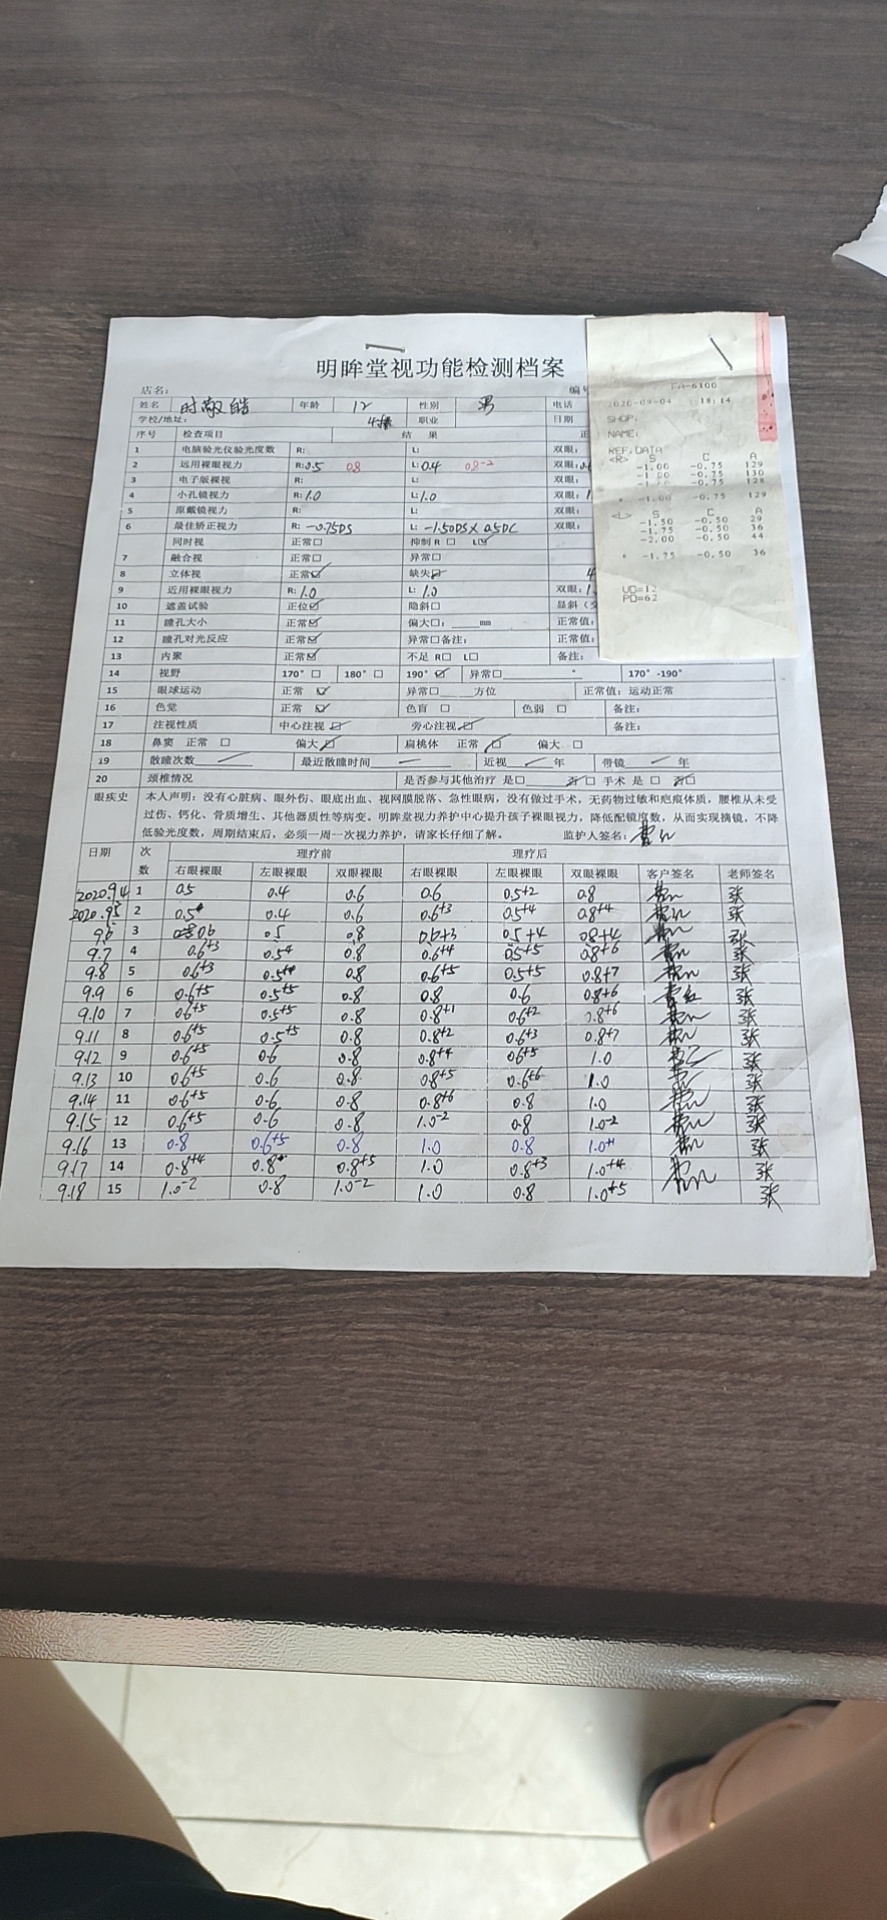 明眸堂视功能检测档案
店名: 编号
姓名 时敬皓 年龄 12 性别 男 电话
学校/地址: 职业 日期
序号 检查项目 结 果 正
1 电脑验光仪验光度数 R: L: 双眼:
2 远用裸眼视力 R:0.5 0.8 L:0.4 0.8-2 双眼:
3 电子版裸视 R: L: 双眼:
4 小孔镜视力 R:1.0 L:1.0 双眼:
5 原戴镜视力 R: L: 双眼:
6 最佳矫正视力 R: -0.75DS L: -1.50DS×0.5DC 双眼:
同时视 正常□ 抑制 R □ L☑
7 融合视 正常□ 异常□
8 立体视 正常☑ 缺失☑
9 近用裸眼视力 R:1.0 L:1.0 双眼:
10 遮盖试验 正位☑ 隐斜□ 显斜(
11 瞳孔大小 正常☑ 偏大□: ____mm 正常值:
12 瞳孔对光反应 正常☑ 异常□备注: 正常值:
13 内聚 正常☑ 不足 R□ L□ 备注:
14 视野 170°□ 180°□ 190°☑ 异常□ ° 170°-190°
15 眼球运动 正常 ☑ 异常□____方位 正常值: 运动正常
16 色觉 正常 ☑ 色盲 □ 色弱 □ 备注:
17 注视性质 中心注视☑ 旁心注视☑ 备注:
18 鼻窦 正常 □ 偏大☑ 扁桃体 正常 ☑ 偏大 □
19 散瞳次数 最近散瞳时间 近视 年 带镜 年
20 颈椎情况 是否参与其他治疗 是□ 否□ 手术 是 □ 否□
眼疾史 本人声明: 没有心脏病、眼外伤、眼底出血、视网膜脱落、急性眼病, 没有做过手术, 无药物过敏和疤痕体质, 腰椎从未受
过伤、钙化、骨质增生、其他器质性等病变。明眸堂视力养护中心提升孩子裸眼视力, 降低配镜度数, 从而实现摘镜, 不降
低验光度数, 周期结束后, 必须一周一次视力养护, 请家长仔细了解。 监护人签名:
日期 次数 理疗前 理疗后
右眼裸眼 左眼裸眼 双眼裸眼 右眼裸眼 左眼裸眼 双眼裸眼 客户签名 老师签名
2020.9.4 1 0.5 0.4 0.6 0.6 0.5+2 0.8 张
2020.9.5 2 0.5 0.4 0.6 0.6+3 0.5+4 0.8+4 张
9.6 3 0.6 0.5 0.8 0.6+3 0.5+4 0.8+4 张
9.7 4 0.6+3 0.5+4 0.8 0.6+4 0.5+5 0.8+6 张
9.8 5 0.6+3 0.5+4 0.8 0.6+5 0.5+5 0.8+7 张
9.9 6 0.6+5 0.5+5 0.8 0.8 0.6 0.8+6 张
9.10 7 0.6+5 0.5+5 0.8 0.8+1 0.6+2 0.8+6 张
9.11 8 0.6+5 0.5+5 0.8 0.8+2 0.6+3 0.8+7 张
9.12 9 0.6+5 0.6 0.8 0.8+4 0.6+5 1.0 张
9.13 10 0.6+5 0.6 0.8 0.8+5 0.6+6 1.0 张
9.14 11 0.6+5 0.6 0.8 0.8+6 0.8 1.0 张
9.15 12 0.6+5 0.6 0.8 1.0-2 0.8 1.0-2 张
9.16 13 0.8 0.6+5 0.8 1.0 0.8 1.0+1 张
9.17 14 0.8+4 0.8 0.8+5 1.0 0.8+3 1.0+4 张
9.18 15 1.0-2 0.8 1.0-2 1.0 0.8 1.0+5 张
FA-6100
2020-09-04 18:14
SHOP:
NAME:
REF.DATA
<R> S C A
-1.00 -0.75 129
-1.00 -0.75 130
-0.75 128
* -1.00 -0.75 129
<L> S C A
-1.50 -0.50 29
-1.75 -0.50 36
-2.00 -0.50 44
* -1.75 -0.50 36
VD=12
PD=62